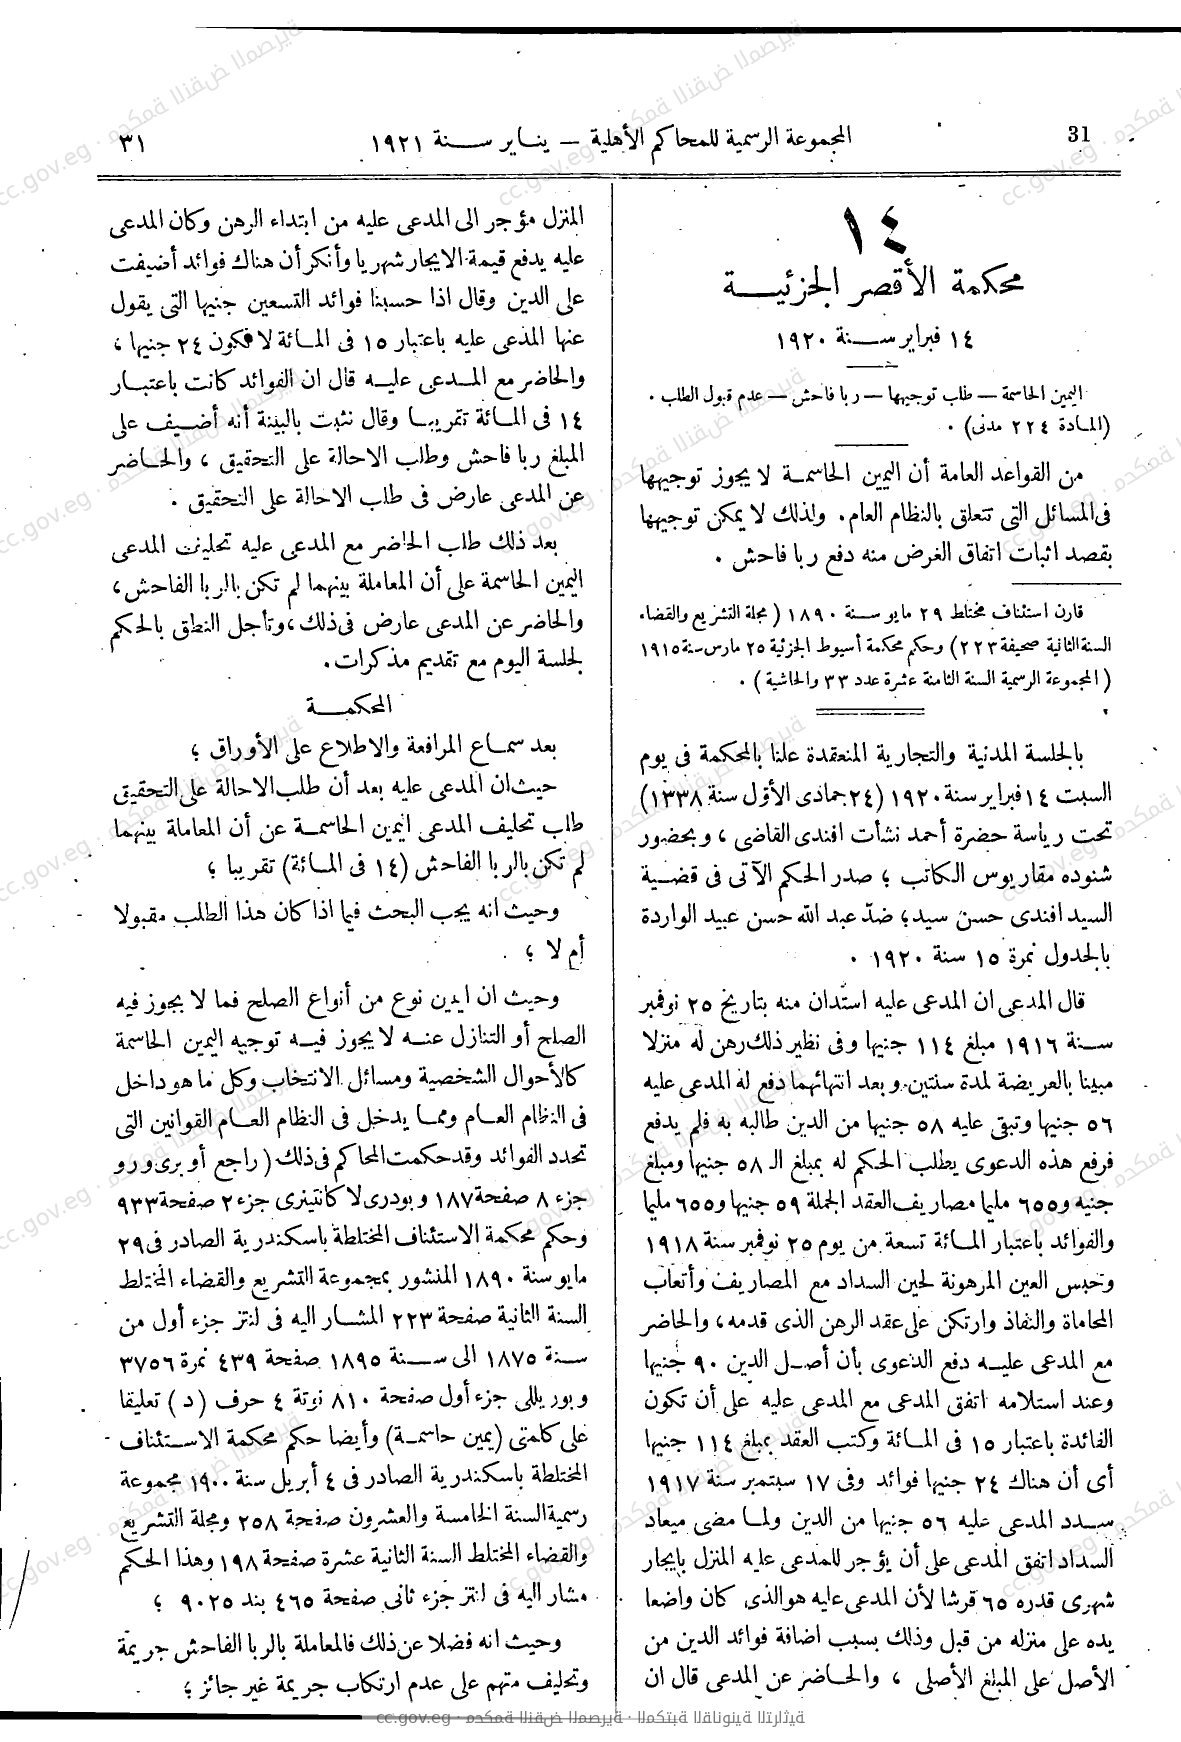 31
المجموعة الرسمية للمحاكم الأهلية — يناير سنة ١٩٢١
٣١
١٤
محكمة الأقصر الجزئية
١٤ فبراير سنة ١٩٢٠
اليمين الحاسمة — طلب توجيهها — ربا فاحش — عدم قبول الطلب .
(المادة ٢٢٤ مدنى) .
من القواعد العامة أن اليمين الحاسمة لا يجوز توجيهها
فى المسائل التى تتعلق بالنظام العام . ولذلك لا يمكن توجيهها
بقصد اثبات اتفاق الغرض منه دفع ربا فاحش .
قارن استئناف مختلط ٢٩ مايو سنة ١٨٩٠ (مجلة التشريع والقضاء
السنة الثانية صحيفة ٢٢٣) وحكم محكمة أسيوط الجزئية ٢٥ مارس سنة ١٩١٥
(المجموعة الرسمية السنة الثامنة عشرة عدد ٣٣ والحاشية) .
بالجلسة المدنية والتجارية المنعقدة علنا بالمحكمة فى يوم
السبت ١٤ فبراير سنة ١٩٢٠ (٢٤ جمادى الأول سنة ١٣٣٨)
تحت رياسة حضرة أحمد نشأت افندى القاضى ، وبحضور
شنوده مقاريوس الكاتب ؛ صدر الحكم الآتى فى قضية
السيد افندى حسن سيد ؛ ضدّ عبد الله حسن عبيد الواردة
بالجدول نمرة ١٥ سنة ١٩٢٠ .
قال المدعى ان المدعى عليه استدان منه بتاريخ ٢٥ نوفمبر
سنة ١٩١٦ مبلغ ١١٤ جنيها وفى نظير ذلك رهن له منزلا
مبينا بالعريضة لمدة سنتين وبعد انتهائهما دفع له المدعى عليه
٥٦ جنيها وتبقى عليه ٥٨ جنيها من الدين طالبه به فلم يدفع
فرفع هذه الدعوى يطلب الحكم له بمبلغ الـ ٥٨ جنيها ومبلغ
جنيه و٦٥٥ مليما مصاريف العقد الجملة ٥٩ جنيها و٦٥٥ مليما
والفوائد باعتبار المائة تسعة من يوم ٢٥ نوفمبر سنة ١٩١٨
وحبس العين المرهونة لحين السداد مع المصاريف وأتعاب
المحاماة والنفاذ وارتكن على عقد الرهن الذى قدمه ، والحاضر
مع المدعى عليه دفع الدعوى بأن أصل الدين ٩٠ جنيها
وعند استلامه اتفق المدعى مع المدعى عليه على أن تكون
الفائدة باعتبار ١٥ فى المائة وكتب العقد بمبلغ ١١٤ جنيها
أى أن هناك ٢٤ جنيها فوائد وفى ١٧ سبتمبر سنة ١٩١٧
سدد المدعى عليه ٥٦ جنيها من الدين ولما مضى ميعاد
السداد اتفق المدعى على أن يؤجر للمدعى عليه المنزل بايجار
شهرى قدره ٦٥ قرشا لأن المدعى عليه هو الذى كان واضعا
يده على منزله من قبل وذلك بسبب اضافة فوائد الدين من
الأصل على المبلغ الأصلى ، والحاضر عن المدعى قال ان
المنزل مؤجر الى المدعى عليه من ابتداء الرهن وكان المدعى
عليه يدفع قيمة الايجار شهريا وأنكر أن هناك فوائد أضيفت
على الدين وقال اذا حسبنا فوائد التسعين جنيها التى يقول
عنها المدعى عليه باعتبار ١٥ فى المائة لا فكون ٢٤ جنيها ،
والحاضر مع المدعى عليه قال ان الفوائد كانت باعتبار
١٤ فى المائة تقريبا وقال نثبت بالبينة أنه أضيف على
المبلغ ربا فاحش وطلب الاحالة على التحقيق ، والحاضر
عن المدعى عارض فى طلب الاحالة على التحقيق .
بعد ذلك طلب الحاضر مع المدعى عليه تحليف المدعى
اليمين الحاسمة على أن المعاملة بينهما لم تكن بالربا الفاحش ،
والحاضر عن المدعى عارض فى ذلك ، وتأجل النطق بالحكم
لجلسة اليوم مع تقديم مذكرات .
المحكمة
بعد سماع المرافعة والاطلاع على الأوراق ؛
حيث ان المدعى عليه بعد أن طلب الاحالة على التحقيق
طلب تحليف المدعى اليمين الحاسمة عن أن المعاملة بينهما
لم تكن بالربا الفاحش (١٤ فى المائة) تقريبا ؛
وحيث انه يجب البحث فيما اذا كان هذا الطلب مقبولا
أم لا ؛
وحيث ان اليمين نوع من أنواع الصلح فما لا يجوز فيه
الصلح أو التنازل عنه لا يجوز فيه توجيه اليمين الحاسمة
كالأحوال الشخصية ومسائل الانتخاب وكل ما هو داخل
فى النظام العام ومما يدخل فى النظام العام القوانين التى
تحدد الفوائد وقد حكمت المحاكم فى ذلك (راجع أوبرى ورو
جزء ٨ صفحة ١٨٧ وبودرى لاكانتينرى جزء ٢ صفحة ٩٣٣
وحكم محكمة الاستئناف المختلطة باسكندرية الصادر فى ٢٩
مايو سنة ١٨٩٠ المنشور بمجموعة التشريع والقضاء المختلط
السنة الثانية صفحة ٢٢٣ المشار اليه فى لنتز جزء أول من
سنة ١٨٧٥ الى سنة ١٨٩٥ صفحة ٤٣٩ نمرة ٣٧٥٦
وبوريللى جزء أول صفحة ٨١٠ نوتة ٤ حرف (د) تعليقا
على كلمتى (يمين حاسمة) وأيضا حكم محكمة الاستئناف
المختلطة باسكندرية الصادر فى ٤ أبريل سنة ١٩٠٠ مجموعة
رسمية السنة الخامسة والعشرون صفحة ٢٥٨ ومجلة التشريع
والقضاء المختلط السنة الثانية عشرة صفحة ١٩٨ وهذا الحكم
مشار اليه فى لنتز جزء ثانى صفحة ٤٦٥ بند ٩٠٢٥ ؛
وحيث انه فضلا عن ذلك فالمعاملة بالربا الفاحش جريمة
وتحليف متهم على عدم ارتكاب جريمة غير جائز ؛